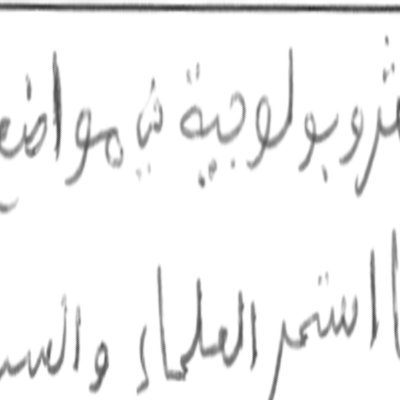 ثروبولوجية في مواضع
ا استمر العلماء والس